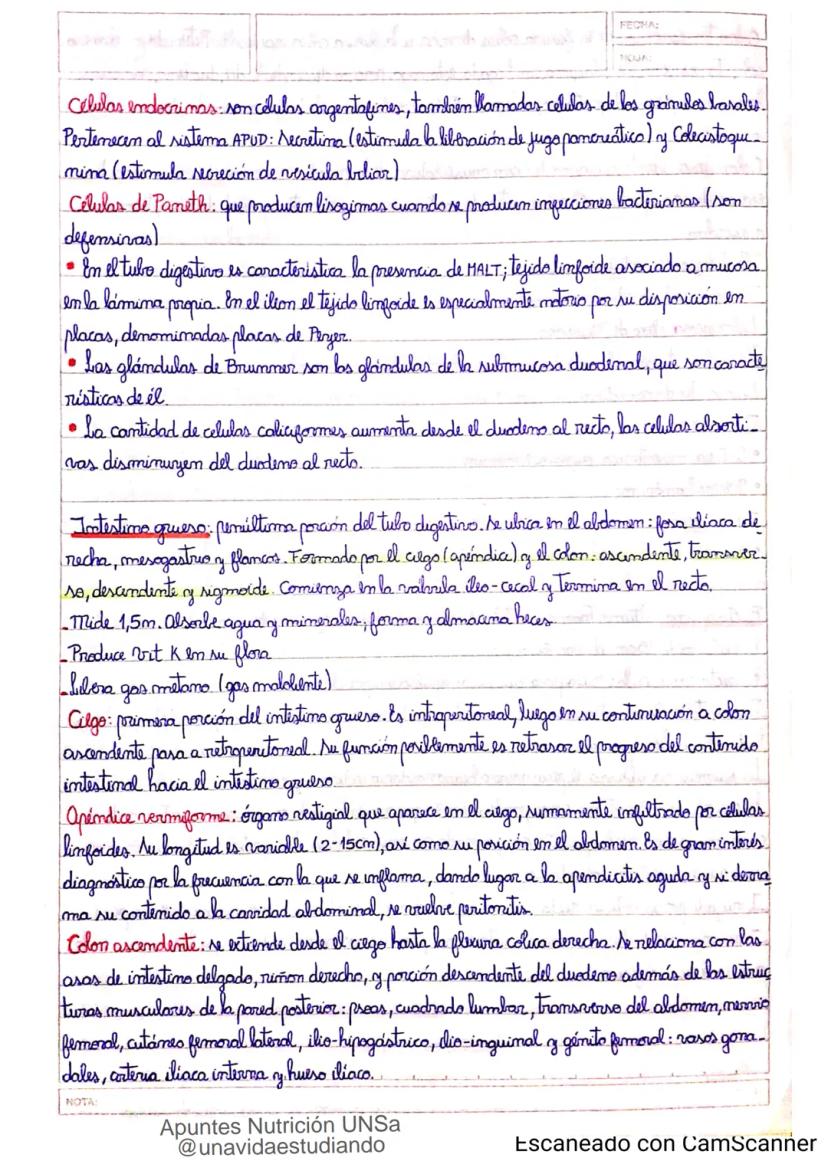 FECHA:
HOJA:
Células endocrinas: son células argentafines, también llamadas celulas de los gránulos basales.
Pertenecen al sistema APUD: Secretina (estimula la liberación de jugo pancreático) y Colecistoqui_
nina (estimula secreción de vesícula biliar)
Células de Paneth: que producen lisozimas cuando se producen infecciones bacterianas (son
defensivas)
• En el tubo digestivo es característica la presencia de MALT; tejido linfoide asociado a mucosa
en la lámina propia. En el ileon el tejido linfoide es especialmente notorio por su disposición en
placas, denominadas placas de Peyer.
• Las glándulas de Brunner son las glándulas de la submucosa duodenal, que son caracte
rísticas de él.
• La cantidad de celulas caliciformes aumenta desde el duodeno al recto, las celulas absorti_
vas disminuyen del duodeno al recto.
Intestino grueso: penúltima porción del tubo digestivo. Se ubica en el abdomen: fosa iliaca de
recha, mesogastrio y flancos. Formado por el ciego (apéndice) y el colon: ascendente, transver_
so, descendente y sigmoide. Comienza en la valvula ileo-cecal y Termina en el recto.
_Mide 1,5m. Absorbe agua y minerales, forma y almacena heces
_Produce Vit K en su flora
_Libera gas metano (gas maloliente)
Ciego: primera porción del intestino grueso. Es intraperitoneal, luego en su continuación a colon
ascendente pasa a retroperitoneal. Su función posiblemente es retrasar el progreso del contenido
intestinal hacia el intestino grueso
Apéndice vermiforme: órgano vestigial que aparece en el ciego, sumamente infiltrado por células
linfoides. Su longitud es variable (2-15cm), así como su posición en el abdomen. Es de gran interés
diagnóstico por la frecuencia con la que se inflama, dando lugar a la apendicitis aguda y si derra
ma su contenido a la cavidad abdominal, se vuelve peritonitis.
Colon ascendente: se extiende desde el ciego hasta la flexura cólica derecha. Se relaciona con las
asas de intestino delgado, riñon derecho, y porción descendente del duodeno además de las estruc
turas musculares de la pared posterior: psoas, cuadrado lumbar, transverso del abdomen, nervio
femoral, cutáneo femoral lateral, ilio-hipogástrico, ilio-inguinal y génito femoral: vasos gona_
dales, arteria iliaca interna y hueso iliaco.
NOTA:
Apuntes Nutrición UNSa
@unavidaestudiando
Escaneado con CamScanner